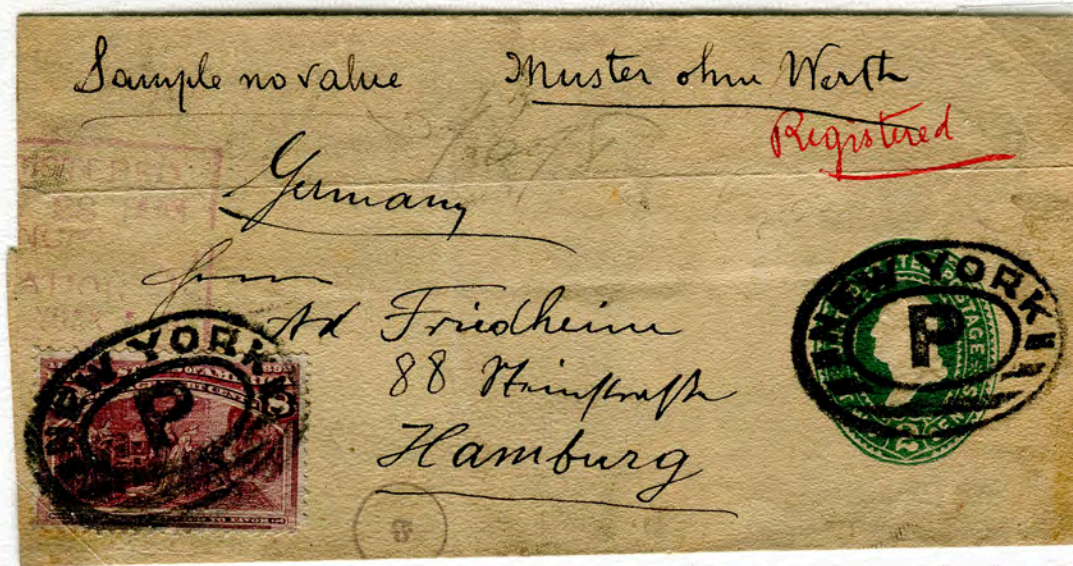 Sample no value Muster ohne Werth
Registered
Germany
Herrn
Ad Friedheim
88 Steinstraße
Hamburg
NEW YORK
P
NEW YORK
P